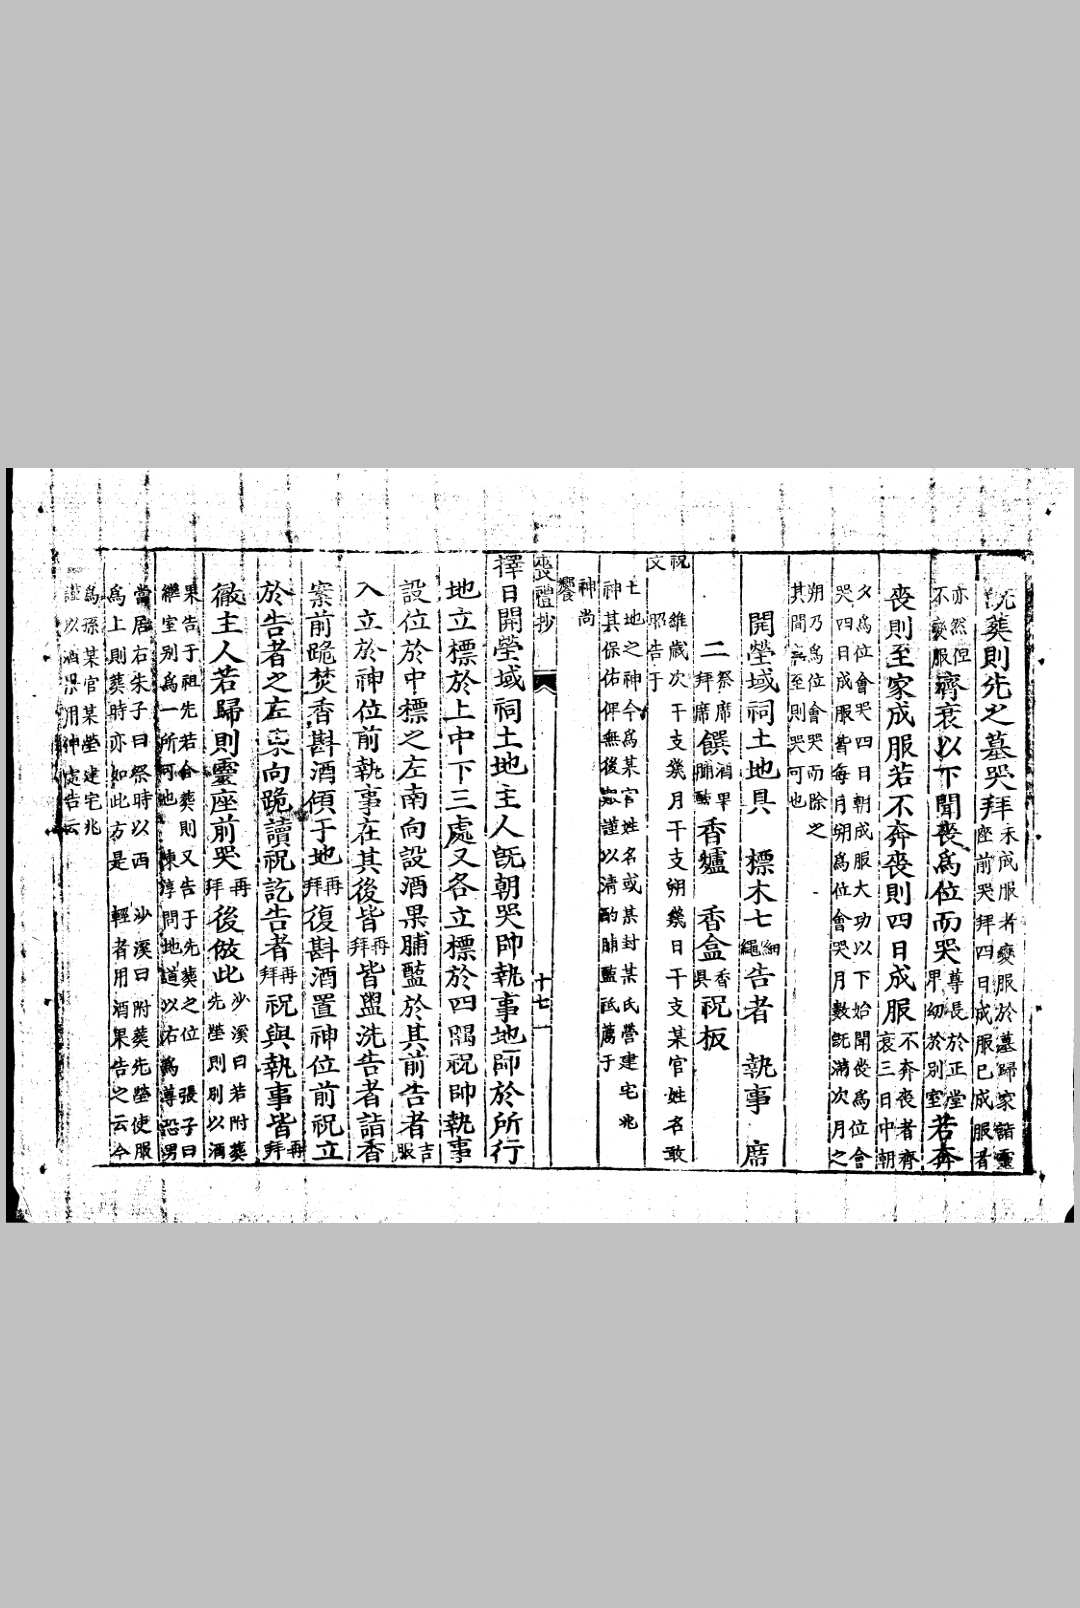 旣葬則先之墓哭拜未成服者變服於墓歸家詣靈座前哭拜四日成服已成服者
亦然但不變服齊衰以下聞喪爲位而哭尊長於正堂卑幼於別室若奔
喪則至家成服若不奔喪則四日成服不奔喪者齊衰三日中朝
夕爲位會哭四日朝成服大功以下始聞喪爲位會哭四日成服皆每月朔爲位會哭月數旣滿次月之
朔乃爲位會哭而除之其間哀至則哭可也
開塋域祠土地具 標木七細繩告者 執事 席
二祭席拜席饌酒果脯醢香爐 香盒香具祝板
祝文 維歲次干支幾月干支朔幾日干支某官姓名敢昭告于
土地之神今爲某官姓名或某封某氏營建宅兆
神其保佑俾無後艱謹以清酌脯醢祗薦于
神尙
饗
喪禮抄 十七
擇日開塋域祠土地主人旣朝哭帥執事地師於所行
地立標於上中下三處又各立標於四隅祝帥執事
設位於中標之左南向設酒果脯醢於其前告者吉服
入立於神位前執事在其後皆再拜皆盥洗告者詣香
案前跪焚香斟酒傾于地再拜復斟酒置神位前祝立
於告者之左東向跪讀祝訖告者再拜祝與執事皆再拜
徹主人若歸則靈座前哭再拜後倣此沙溪曰若附葬先塋則別以酒
果告于祖先若合葬則又告于先葬之位 張子曰繼室別爲一所可也 陳淳問地道以右爲尊恐男
當居右朱子曰祭時以西爲上則葬時亦如此方是 沙溪曰附葬先塋使服輕者用酒果告之云今
爲孫某官某塋建宅兆謹以酒果用伸虔告云